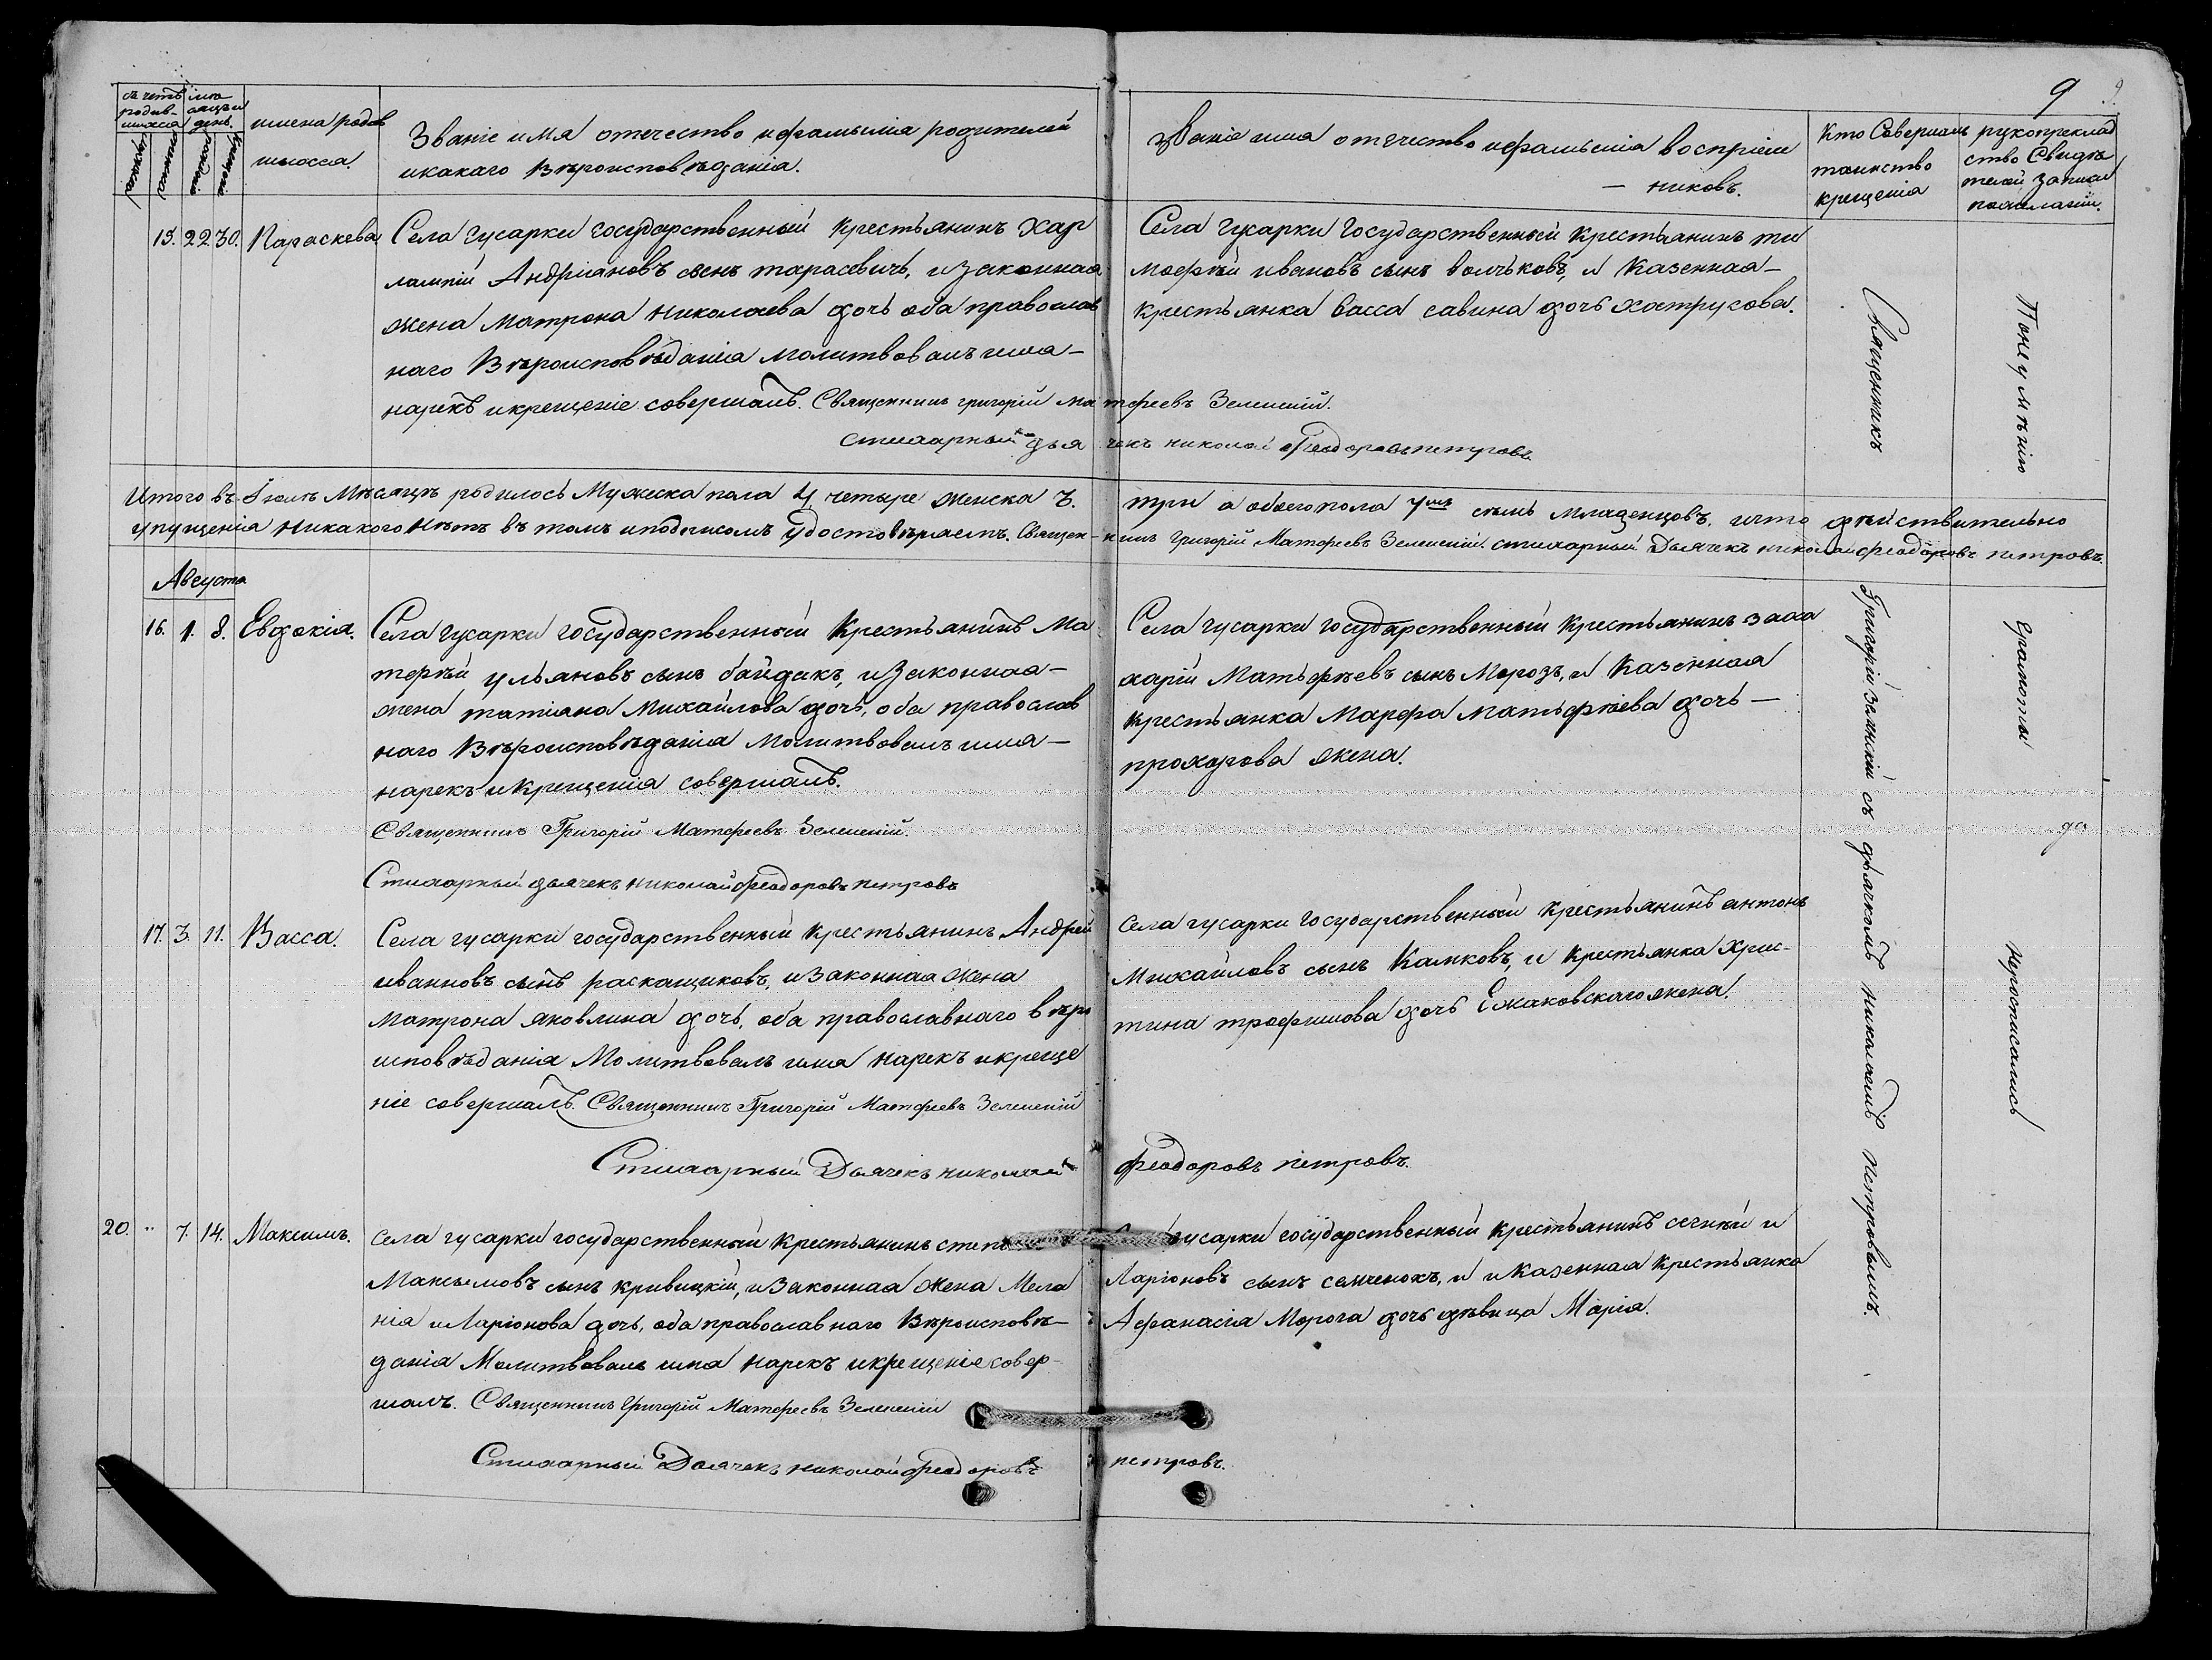 9
счетъ родив-шихся
мѣсяцъ и день.
имена родив
шыхся.
Званіе имя отечество ифамилія родителей
икакаго вѣроисповѣданія.
Званіе имя отечество ифамилія воспріем
— никовъ.
Кто Совершалъ
таинство
крещенія
рукоприклад
ство Свидѣ
телей записи
пожеланіи.
15. 22. 30. Параскева
Села гусарки государственный крестьянинъ Хар
лампій Андріяновъ сынъ тарасевичь, изаконная
жена матрона николаева дочь оба православ
наго Вѣроисповѣданія молитвовалъ имя —
нарекъ икрещеніе совершалъ. Священникъ григорій матфеевъ Зеленскій.
стихарный дьячекъ николай Феодоровъ петровъ
Села гусарки государственный крестьянинъ ти
мофѣй ивановъ сынъ волчьковъ, и Казенная —
крестьянка васса савина дочь хатрусова.
Итого въ Іюлѣ Мѣсяцѣ родилось Мужеска пола 4 четыре женска 3. три а обоего пола 7мь семь младенцовъ. ичто дѣйствительно
упущенія никакого нѣтъ въ томъ иподписомъ удостовѣряемъ. Священникъ Григорій Матфеевъ Зеленскій. стихарный Дьячекъ николай феодоровъ петровъ.
Августа
16. 1. 8. Евдокія.
Села гусарки государственный крестьянинъ Ма
тфѣй ульяновъ сынъ байдакъ, изаконная —
жена татіана Михайлова дочь, оба православ
наго Вѣроисповѣданія Молитвовалъ имя —
нарекъ икрещенія совершалъ.
Священникъ Григорій Матфеевъ Зеленскій.
Стихарный дьячекъ николай феодоровъ петровъ
Села гусарки государственный крестьянинъ заха
харій Матьфѣевъ сынъ Морозъ, и Казенная
крестьянка Марфа Матьфѣева дочь —
прохорова жена.
17. 3. 11. Васса.
Села гусарки государственный крестьянинъ Андрей
иванновъ сынъ раскащиковъ, изаконная жена
матрона яковлина дочь, оба православнаго вѣро
исповѣданія Молитвовалъ имя нарекъ икреще
ніе совершалъ. Священникъ Григорій Матфеевъ Зеленскій
Стихарный Дьячекъ николай феодоровъ петровъ.
села гусарки государственный крестьянинъ антонъ
Михайловъ сынъ Камковъ, и крестьянка Хрис-
тина трофимова дочь Ежаковскаго жена.
20. " 7. 14. Максимъ.
села гусарки государственный крестьянинъ степ
Максымовъ сынъ кривицкій, изаконная жена Мела
нія иларіонова дочь, оба православнаго Вѣроисповѣ—
данія Молитвовалъ имя нарекъ икрещеніе совер-
шалъ. Священникъ Григорій Матфеевъ Зеленскій
Стихарный Дьячекъ николай феодоровъ петровъ.
гусарки государственный крестьянинъ и
Ларіоновъ сынъ семченокъ, и иказенная крестьянка
Афанасія Морога дочь дѣвица Марія.
Священникъ Григорій Зеленскій съ дьячкомъ николаемъ петровымъ.
Понеумѣнію грамоты неросписались
да